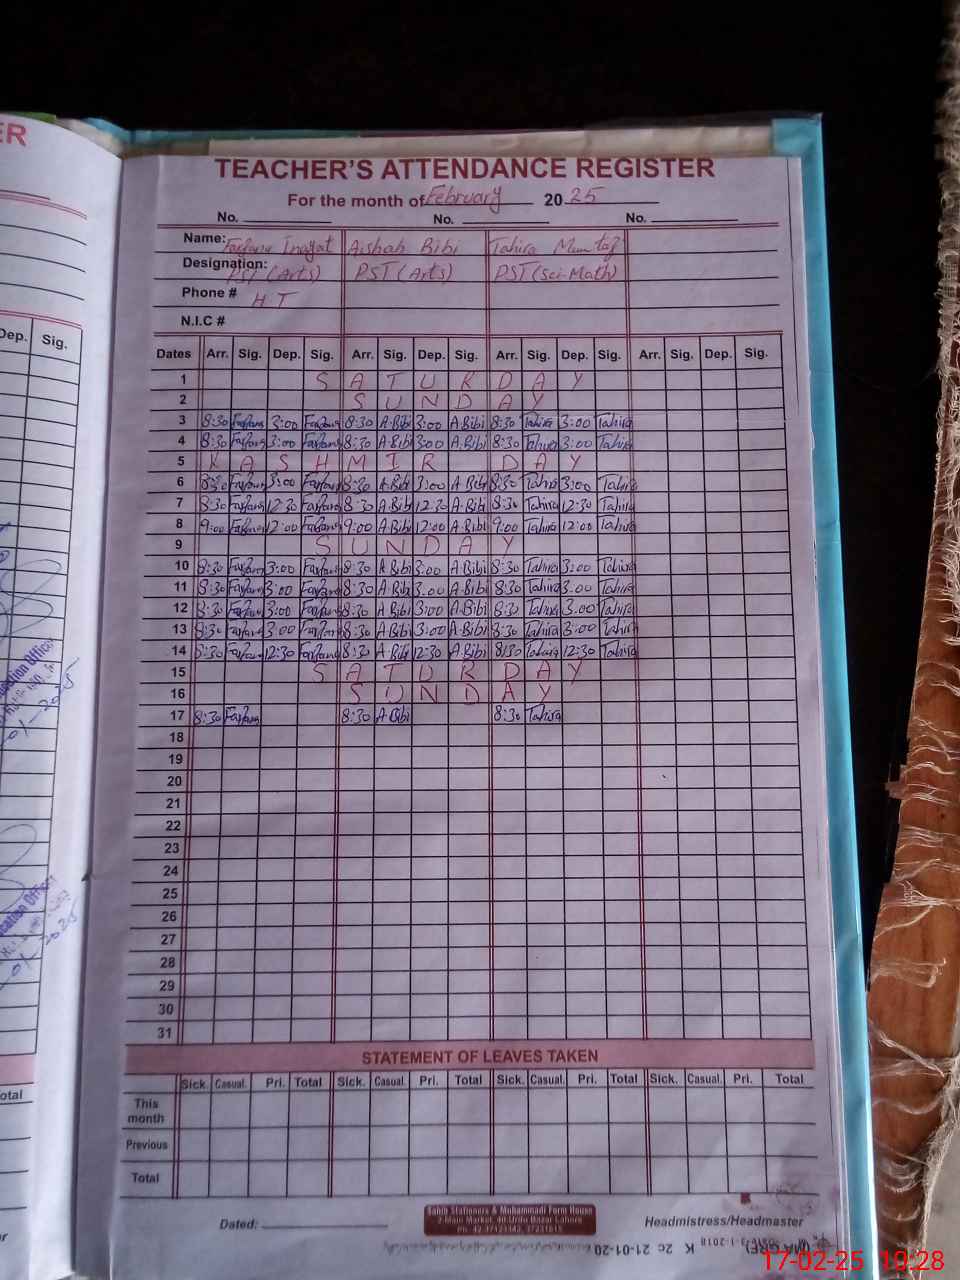 ER
TEACHER'S ATTENDANCE REGISTER
For the month of February 20 25
No. No. No.
Name: Farzana Inayat Aishah Bibi Tahira Mumtaz
Designation: PST (Arts) PST (Arts) PST (Sci-Math)
Phone # H T
N.I.C #
Dep. Sig.
Dates Arr. Sig. Dep. Sig. Arr. Sig. Dep. Sig. Arr. Sig. Dep. Sig. Arr. Sig. Dep. Sig.
1 S A T U R D A Y
2 S U N D A Y
3 8:30 Farzana 3:00 Farzana 8:30 A.Bibi 3:00 A.Bibi 8:30 Tahira 3:00 Tahira
4 8:30 Farzana 3:00 Farzana 8:30 A.Bibi 3:00 A.Bibi 8:30 Tahira 3:00 Tahira
5 K A S H M I R D A Y
6 8:30 Farzana 3:00 Farzana 8:30 A.Bibi 3:00 A.Bibi 8:30 Tahira 3:00 Tahira
7 8:30 Farzana 12:30 Farzana 8:30 A.Bibi 12:30 A.Bibi 8:30 Tahira 12:30 Tahira
8 9:00 Farzana 12:00 Farzana 9:00 A.Bibi 12:00 A.Bibi 9:00 Tahira 12:00 Tahira
9 S U N D A Y
10 8:30 Farzana 3:00 Farzana 8:30 A.Bibi 3:00 A.Bibi 8:30 Tahira 3:00 Tahira
11 8:30 Farzana 3:00 Farzana 8:30 A.Bibi 3:00 A.Bibi 8:30 Tahira 3:00 Tahira
12 8:30 Farzana 3:00 Farzana 8:30 A.Bibi 3:00 A.Bibi 8:30 Tahira 3:00 Tahira
13 8:30 Farzana 3:00 Farzana 8:30 A.Bibi 3:00 A.Bibi 8:30 Tahira 3:00 Tahira
14 8:30 Farzana 12:30 Farzana 8:30 A.Bibi 12:30 A.Bibi 8:30 Tahira 12:30 Tahira
15 S A T U R D A Y
16 S U N D A Y
17 8:30 Farzana 8:30 A.Bibi 8:30 Tahira
18
19
20
21
22
23
24
25
26
27
28
29
30
31
STATEMENT OF LEAVES TAKEN
Sick. Casual. Pri. Total Sick. Casual. Pri. Total Sick. Casual. Pri. Total Sick. Casual. Pri. Total
This month
Previous
Total
Sahib Stationers & Muhammadi Form House
2-Main Market, 40-Urdu Bazar Lahore
Dated: Headmistress/Headmaster
K 2c 21-01-20
17-02-25 10:28